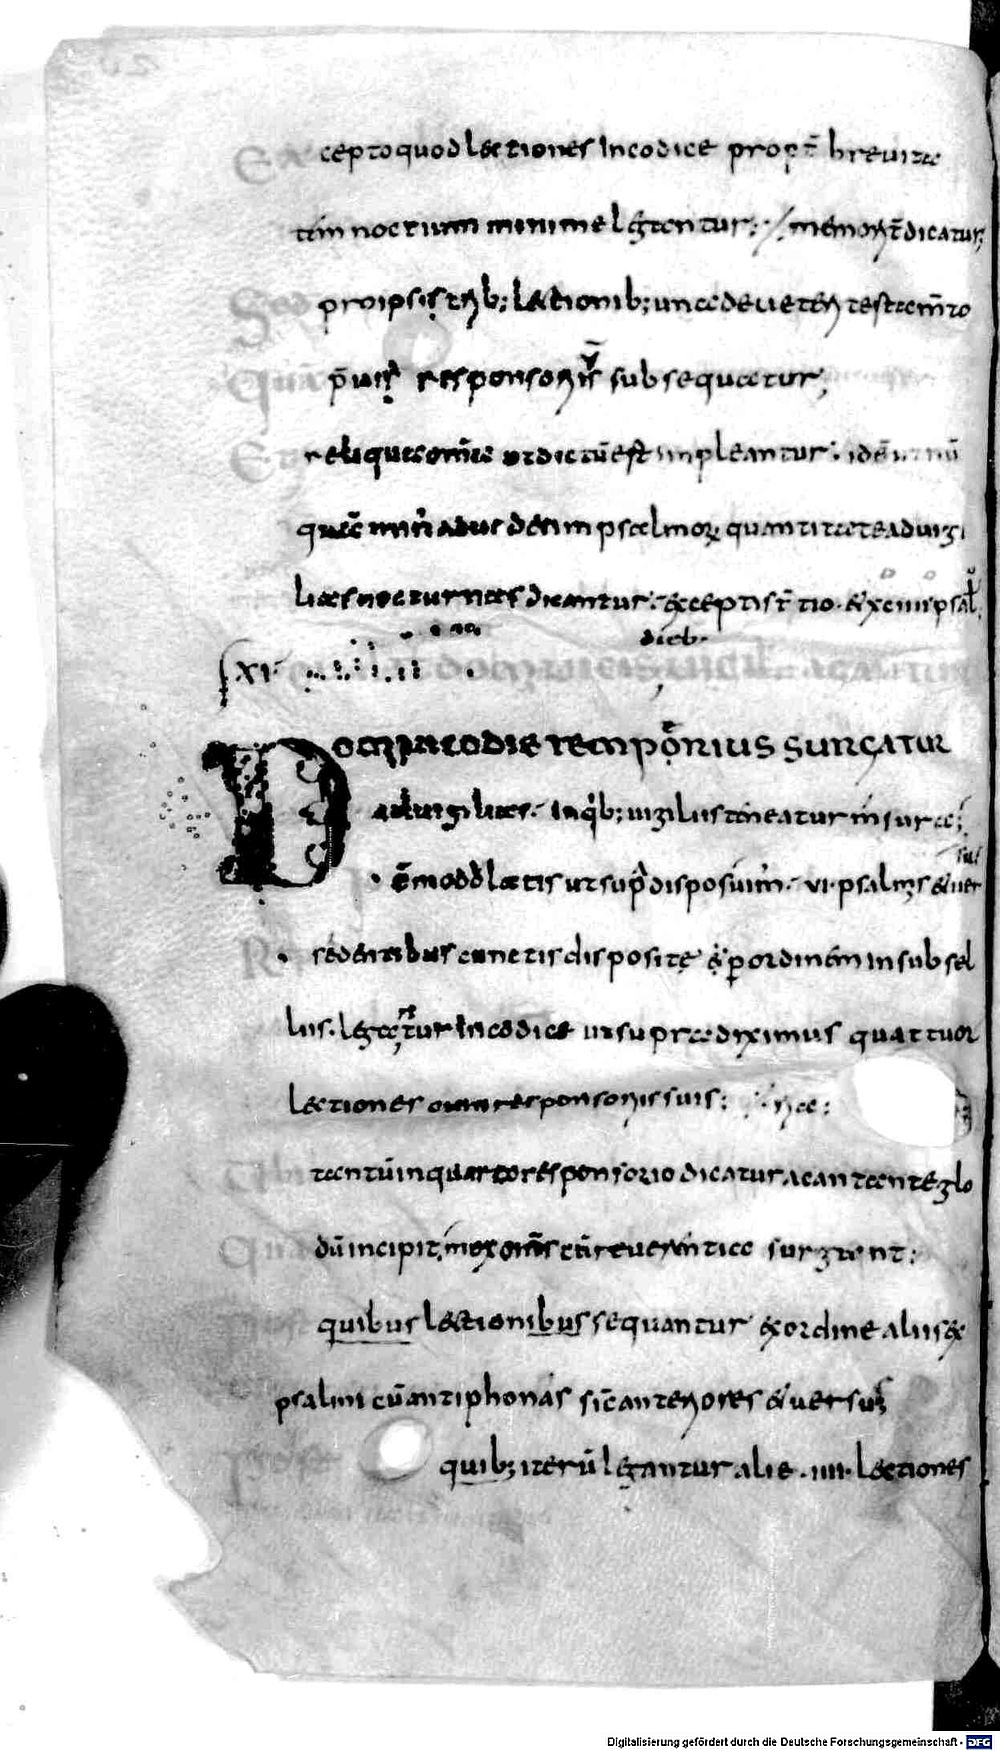 Excepto quod lectiones In codice propt̄ breuita
tem noctium minime legentur; / memorit̄ dicatur;
Sed pro ipsis trib; lectionib; una de ueteri testam̄to
quā breuis responsoriꝰ subsequatur;
Et reliqua om̄ia ut dictū est impleantur; id ē ut nū
quā minꝰ a duodenim psalmoꝝ quantitate ad uigi
lias nocturnas dicantur; exceptis t̄tio · & xciiii psal;
dieb·
xi dominicis uigil· agantur
Dominico die temporius surgatur
ad uigilias. In qb; uigiliis teneatur mensura;
· ē modolatis ut sup̄ disposuim̄· vi· psalmis & uer su
Residentibus cunctis disposite & p ordinem in subsel
liis. legantur In codice ut supra diximus quattuor
lectiones cum responsoriis suis;
tantū in quarto responsorio dicatur a cantante glo ria;
Quā dū incipit, mox om̄s cū reuerentia surgant;
quibus lectionibus sequantur ex ordine alii sex
psalmi cū antiphonas sic̄ anteriores & uersu
Post quib; iterū legantur alie · iiii· lectiones
Digitalisierung gefördert durch die Deutsche Forschungsgemeinschaft - DFG